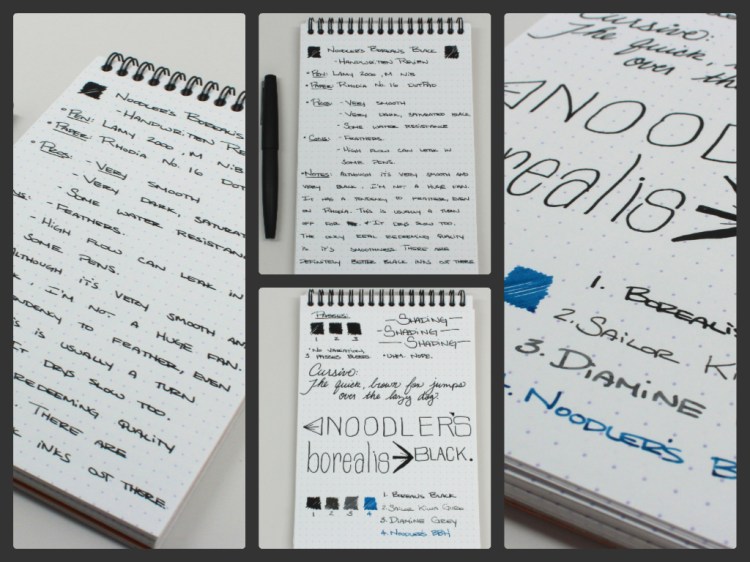 NOODLER'S BOREALIS
- HANDWRITEN RE
• PEN: LAMY 2000, M NIB
• PAPER: RHODIA NO. 16 DOT
• PROS: - VERY SMOOTH
- VERY DARK, SATURAT
- SOME WATER RESISTAN
NS: - FEATHERS.
- HIGH FLOW CAN LEAK IN
SOME PENS.
ALTHOUGH IT'S VERY SMOOTH AN
K, I'M NOT A HUGE FAN.
TENDENCY TO FEATHER, EVEN
S IS USUALLY A TURN
IT DRYS SLOW TOO.
REDEEMING QUALITY
THERE ARE
K INKS OUT THERE
NOODLER'S BOREALIS BLACK
- HANDWRITEN REVIEW
• PEN: LAMY 2000, M NIB
• PAPER: RHODIA NO. 16 DOTPAD
• PROS: - VERY SMOOTH
- VERY DARK, SATURATED BLACK
- SOME WATER RESISTANCE
• CONS: - FEATHERS.
- HIGH FLOW CAN LEAK IN
SOME PENS.
• NOTES: ALTHOUGH IT'S VERY SMOOTH AND
VERY BLACK, I'M NOT A HUGE FAN.
IT HAS A TENDENCY TO FEATHER, EVEN
ON RHODIA. THIS IS USUALLY A TURN
OFF FOR ME. & IT DRYS SLOW TOO.
THE ONLY REAL REDEEMING QUALITY
IS IT'S SMOOTHNESS. THERE ARE
DEFINITELY BETTER BLACK INKS OUT THERE
PASSES:
1 2 3
• NO VARIATION,
3 PASSES BLEEDS
SHADING
SHADING
SHADING
• UHM. NOPE.
Cursive:
The quick, brown fox jumps
over the lazy dog.
NOODLER'S
borealis BLACK.
1 2 3 4
1. BOREALIS BLACK
2. SAILOR KIWA GURO
3. DIAMINE GREY
4. NOODLER'S BBH
Cursive:
The quick,
over th
NOOD
realis
1. BOREALIS
2. SAILOR KI
3. DIAMINE
4. NOODLER'S B